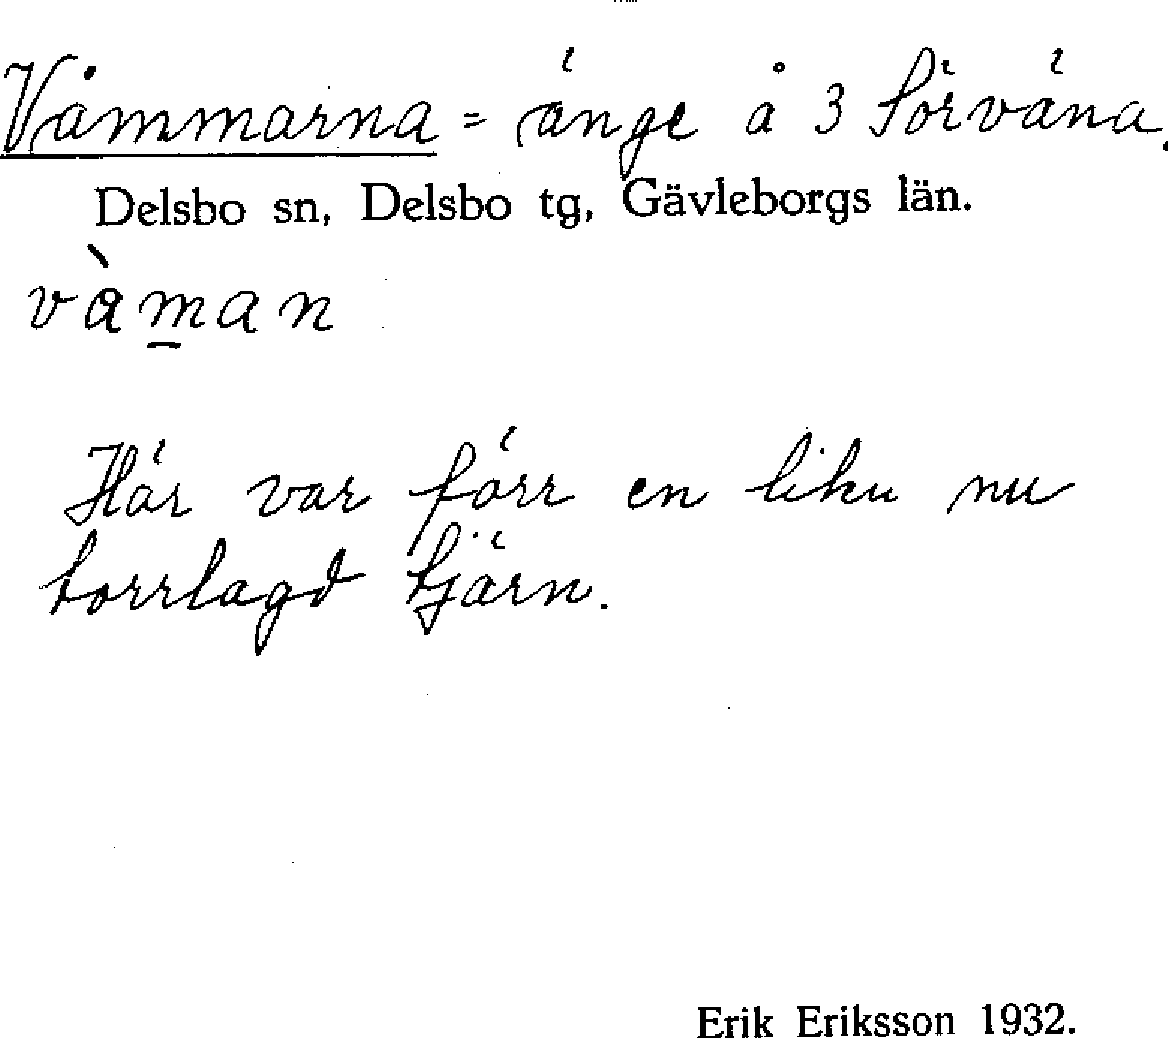 Våmmarna = änge å 3 Sörväna.
Delsbo sn, Delsbo tg, Gävleborgs län.
vàman
Här var förr en liku nu
torrlagd tjärn.
Erik Eriksson 1932.